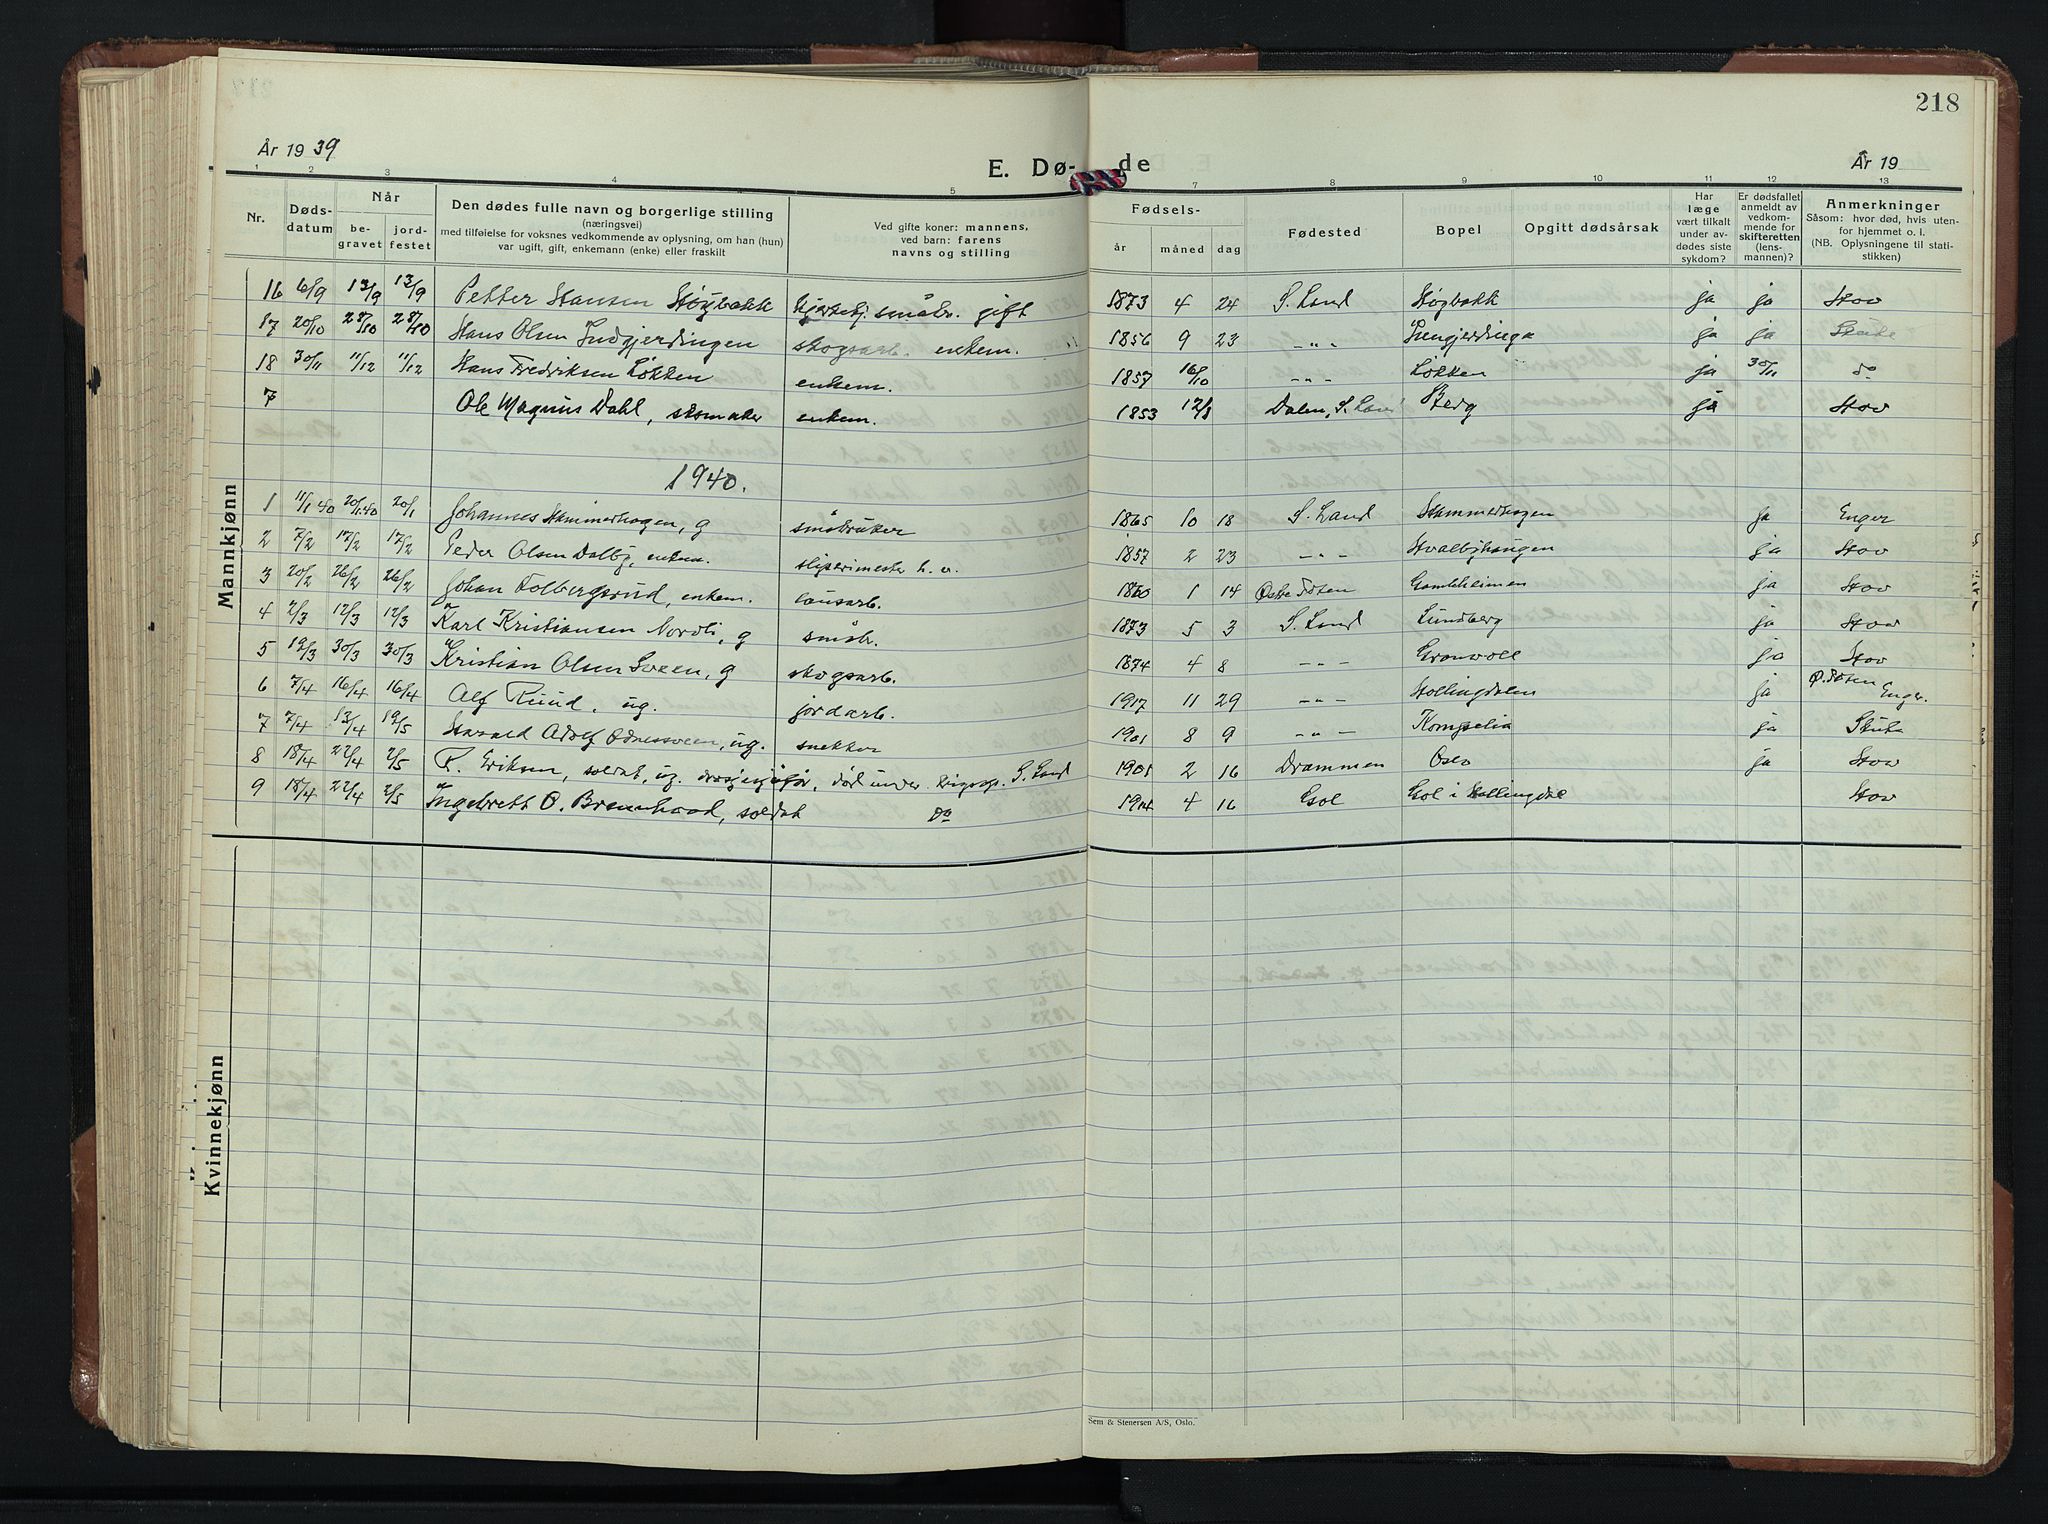 218
År 19 39
E. Dø-
de
År 19
1 2 3 4 5 7 8 9 10 11 12 13
Nr.
Døds-
datum
Når
be-
gravet
jord-
festet
Den dødes fulle navn og borgerlige stilling
(næringsvei)
med tilføielse for voksnes vedkommende av oplysning, om han (hun)
var ugift, gift, enkemann (enke) eller fraskilt
Ved gifte koner: mannens,
ved barn: farens
navns og stilling
Fødsels-
år måned dag
Fødested
Bopel
Opgitt dødsårsak
Har
læge
vært tilkalt
under av-
dødes siste
sykdom?
Er dødsfallet
anmeldt av
vedkom-
mende for
skifteretten
(lens-
mannen)?
Anmerkninger
Såsom: hvor død, hvis uten-
for hjemmet o. l.
(NB. Oplysningene til stati-
stikken)
16 6/9 13/9 13/9 Petter Hansen Høgbakk småbr. gift 1873 4 24 S. Land Høgbakk ja ja Hov
17 20/10 28/10 28/10 Hans Olsen Indgjerdingen skogsarb. enkem. 1856 9 23 -"- ja ja
18 30/11 11/12 11/12 Hans Fredriksen Løkken enkem. 1857 16/10 -"- Løkken ja 30/11 do
7 Ole Magnus Dahl, skomaker enkem. 1853 12/3 Dalen, S. Land Berg ja Hov
1940.
Mannkjønn
1 11/1 40 20/1 40 20/1 Johannes Hammerhagen, g småbruker 1865 10 18 S. Land Hammerhagen ja Enger
2 7/2 17/2 17/2 Peder Olsen Dalby, enkem. sliperimester 1857 2 23 -"- Hvalbyhaugen ja Hov
3 20/2 26/2 26/2 Johan Tolbergsrud, enkem. løusarb. 1860 1 14 Østre Toten Gamleheimen ja Hov
4 2/3 12/3 12/3 Karl Kristiansen Nordli, g småbr. 1873 5 3 S. Land Lundberg ja Hov
5 19/3 30/3 30/3 Kristian Olsen Sveen, g skogsarb. 1874 4 8 -"- Grønvoll ja Hov
6 7/4 16/4 16/4 Alf Ruud, ug. jordarb. 1917 11 29 -"- Hollingdalen ja Ø. Toten Enger.
7 7/4 13/4 19/5 Harald Adolf Odnessveen, ug. snekker 1901 8 9 -"- Kompelia ja
8 18/4 22/4 2/5 R. Eriksen, soldat, ug. drosjesjåfør, død under krigsop. S. Land 1901 2 16 Drammen Oslo ja Hov
9 18/4 22/4 2/5 Ingebrett O. Brennhood, soldat Do 1914 4 16 Gol Gol i Hallingdal Hov
Kvinnekjønn
Sem & Stenersen A/S, Oslo.